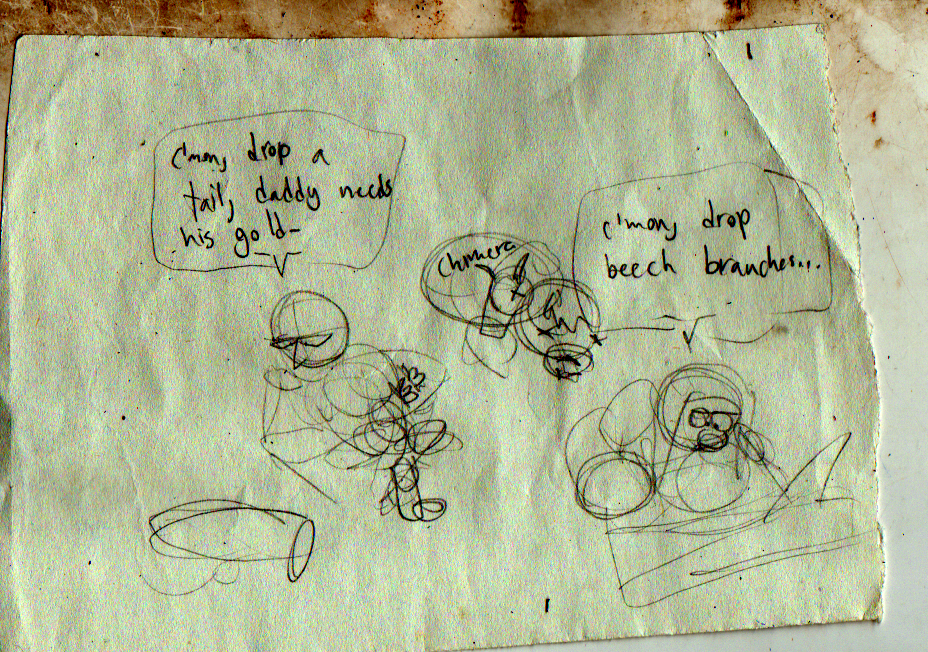 c'mon, drop a
tail, daddy needs
his gold-
chimera
c'mon, drop
beech branches...